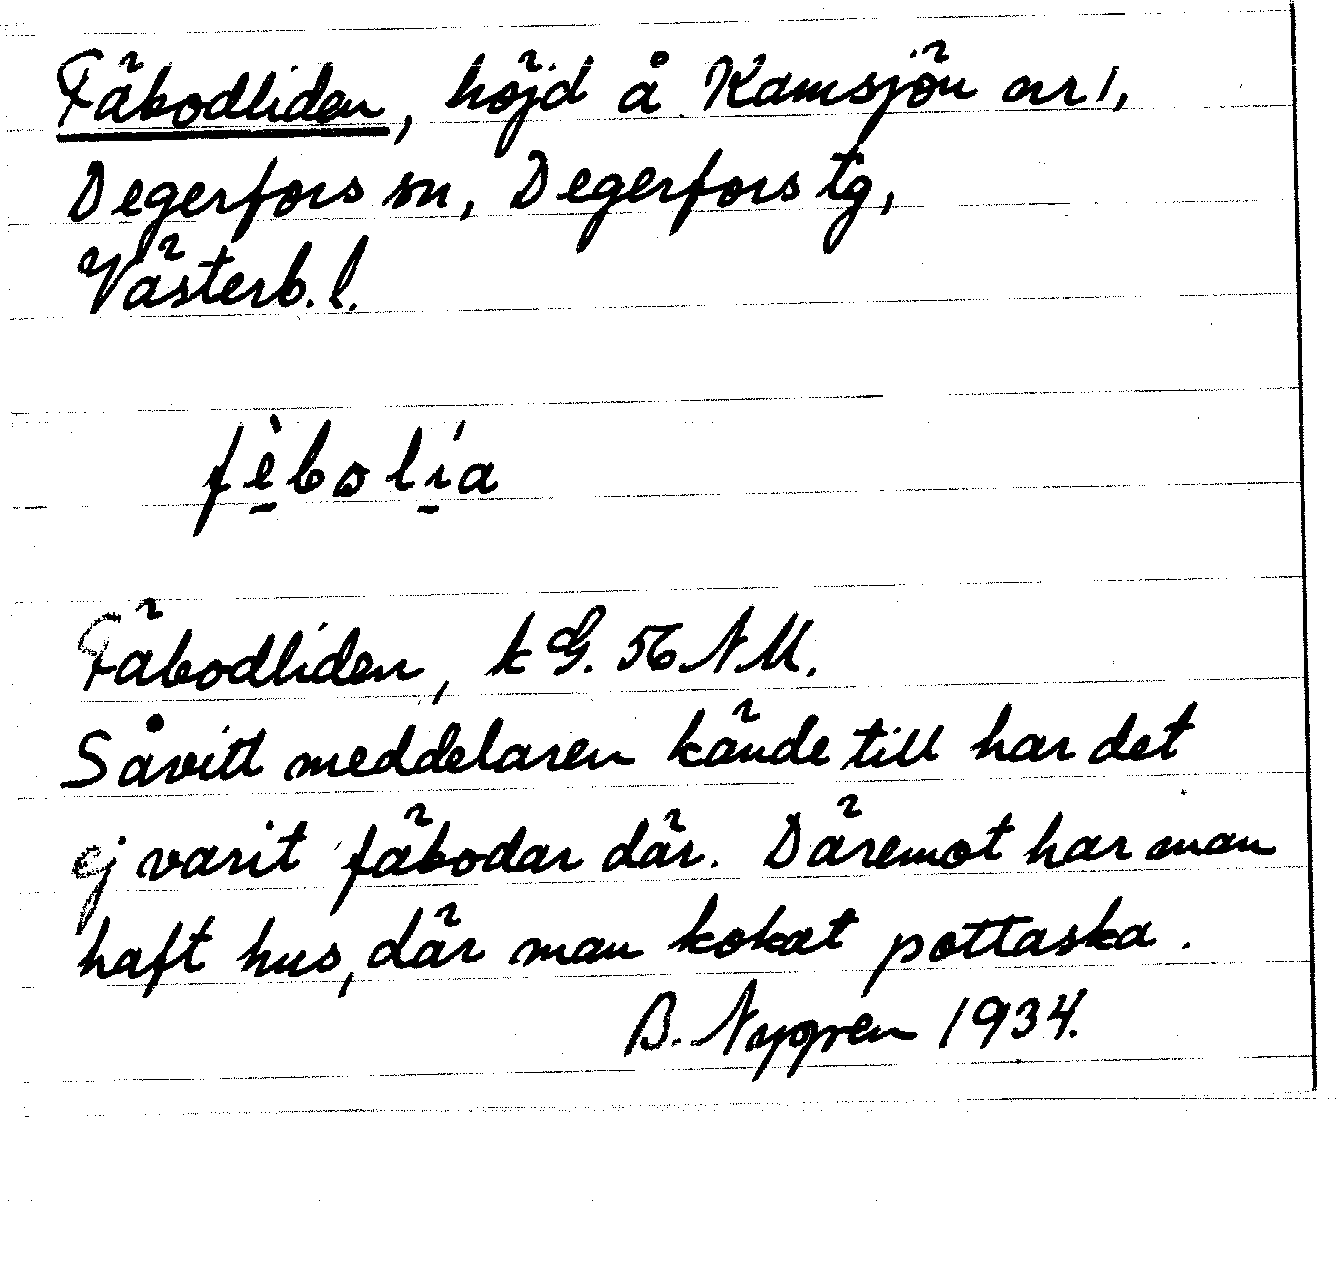 Fäbodliden, höjd å Kamsjön nr 1,
Degerfors sn, Degerfors tg,
Västerb. l.
fè̱bolí̱a
Fäbodliden, k G. 56 NU.
Såvitt meddelaren kände till har det
ej varit fäbodar där. Däremot har man
haft hus, där man kokat pottaska.
B. Nygren 1934.